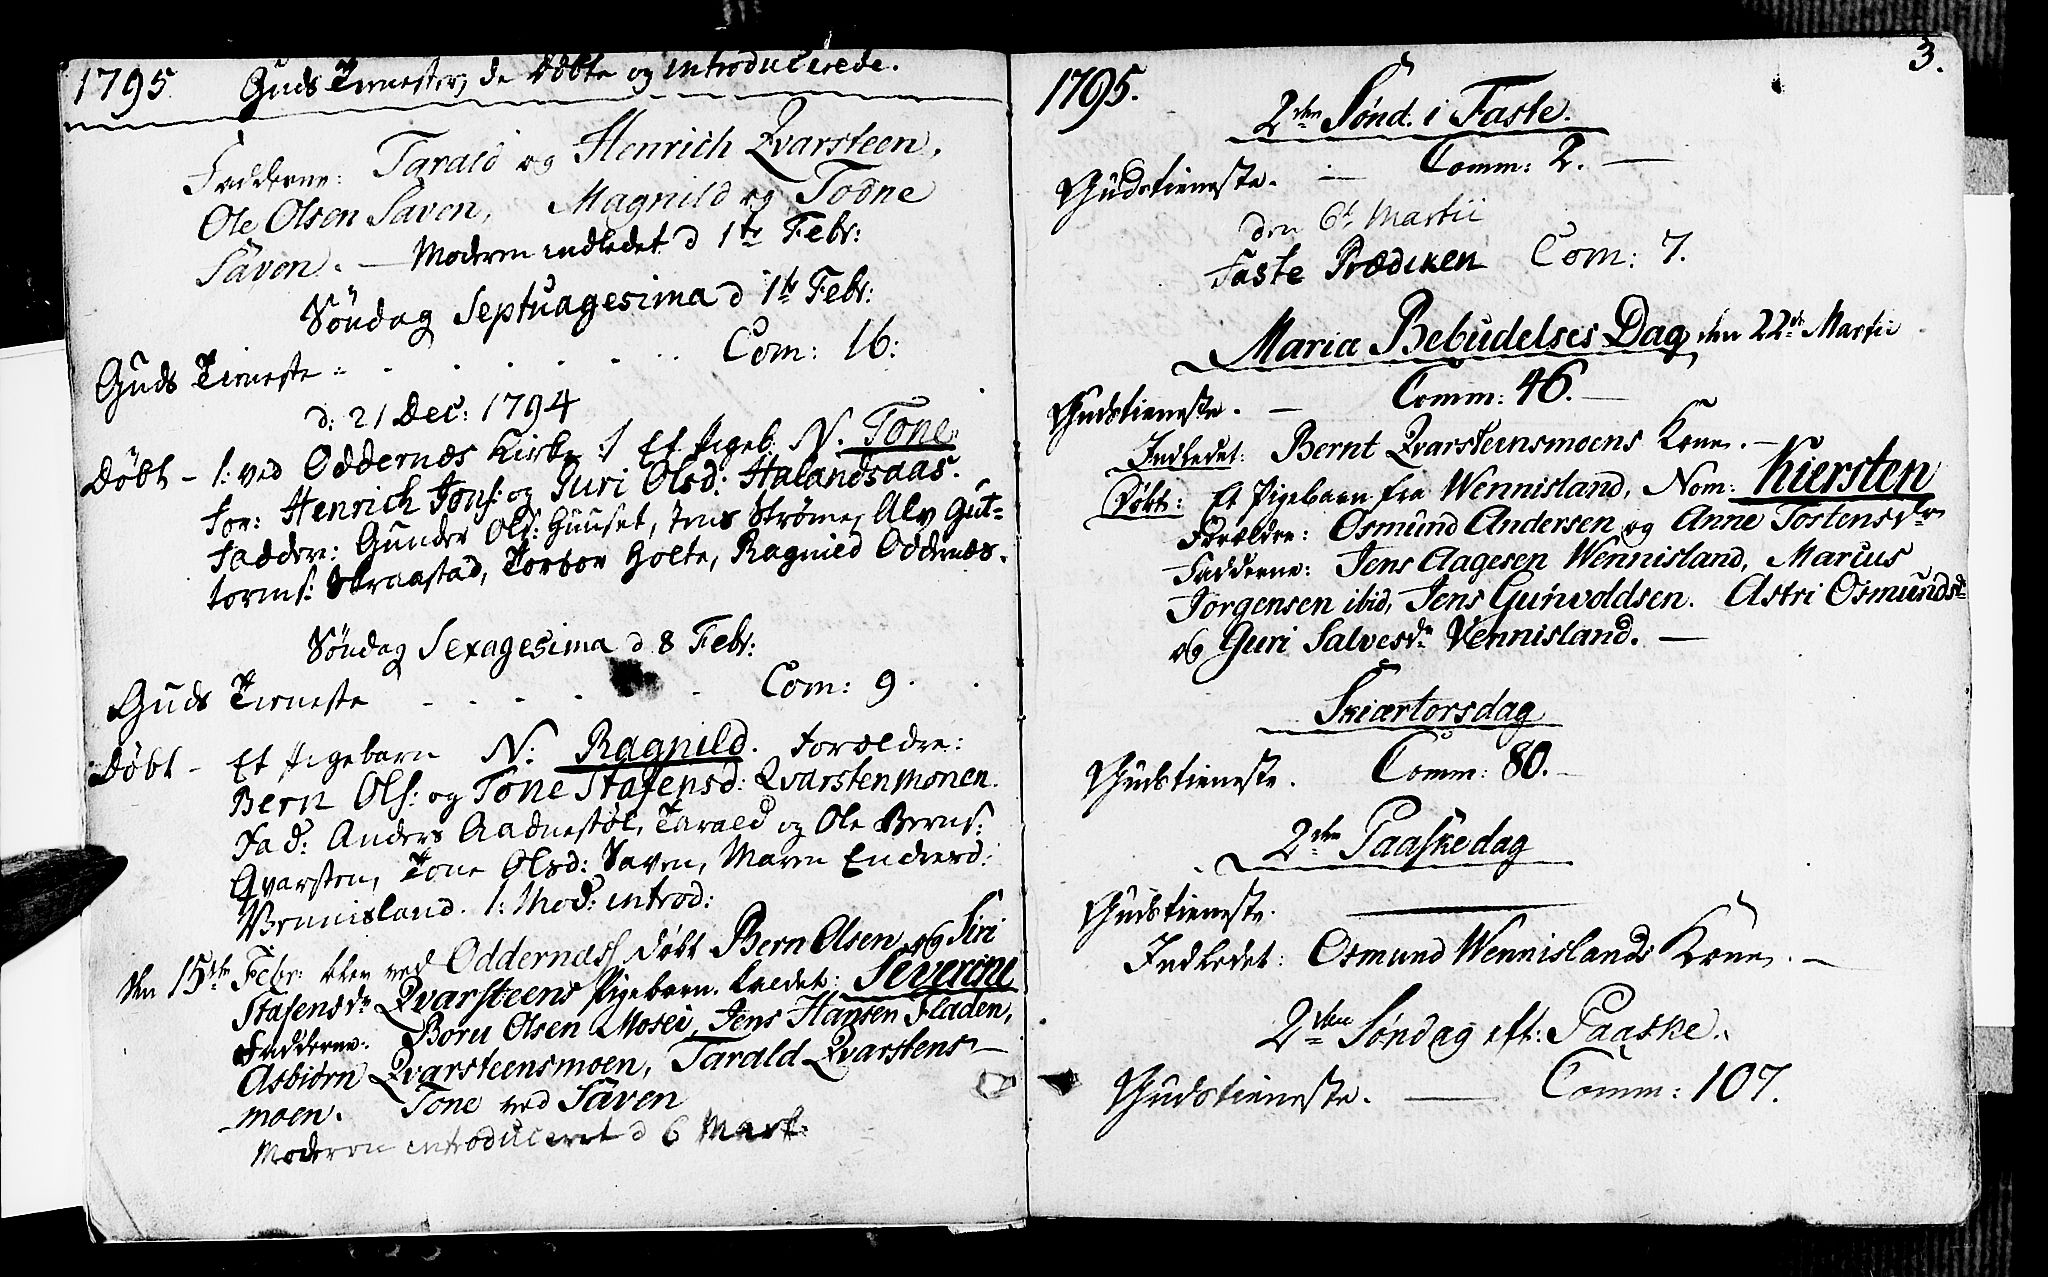 1795 Guds Tienester, de Döbte og introducerede.
Fadderne: Tarald og Henrich Qvarsteen,
Ole Olsen Säven, Magnild og Todne
Säven. — Moderen indledet d 1te Febr:
Söndag Septuagesima d 1te Febr:
Guds Tieneste - - - - - Com: 16:
d: 21 Dec: 1794
Döbt - /: ved Oddernæs Kirke :/ Et Pigeb. N. Tone
For: Henrich Jons: og Juri Olsd: Halandsaas.
Fadder: Gunder Ols: Huuset, Jens Ströme, Alv Gut-
torms: Straastad, Torbor Holte, Ragnild Oddernæs.
Söndag Sexagesima d 8 Febr:
Guds Tieneste - - - - - Com: 9.
Döbt - Et Pigebarn N: Ragnild. Forældre:
Bern Ols: og Tone Stafensd: Qvarstenmonen.
Fad: Anders Aadnestöl, Tarald og Ole Berns:
Qvarsten, Tone Olsd: Saven, Maren Endresd:
Vennisland. /: Mod: introd:
Den 15de Febr: blev ved Oddernæs döbt Bern Olsen og Siri
Stafensdr Qvarsteens Pigebarn. kaldet: Severine
Fadderne: Boru Olsen Mosei, Jens Hansen Fladen,
Asbiörn Qvarsteensmoen, Tarald Qvarstens-
moen. Tone ved Säven
Moderen introduceret d 6 Mart:
1795. 3.
2den Sönd. i Faste.
Gudstieneste. — Comm: 2. —
den 6te Martii
Faste Prædiken Com: 7.
Maria Bebudelses Dag den 22de Martii
Gudstieneste. — Comm: 46. —
Indledet: Bernt Qvarsteensmoens Kone. —
Döbt: Et Pigebarn fra Wennisland, Nom: Kiersten
Forældre: Osmund Andersen og Anne Tostensdr
Fadderne: Jens Aagesen Wennisland, Marcus
Jorgensen ibid, Jens Gunvoldsen. Astri Osmundsd
og Guri Salvesdr Vennisland. —
Skiærtorsdag
Gudstieneste. Comm: 80. —
2den Paaskedag
Gudstieneste. —
Indledet: Osmund Wennislands Kone. —
2den Söndag eft: Paaske.
Gudstieneste. — Comm: 107.